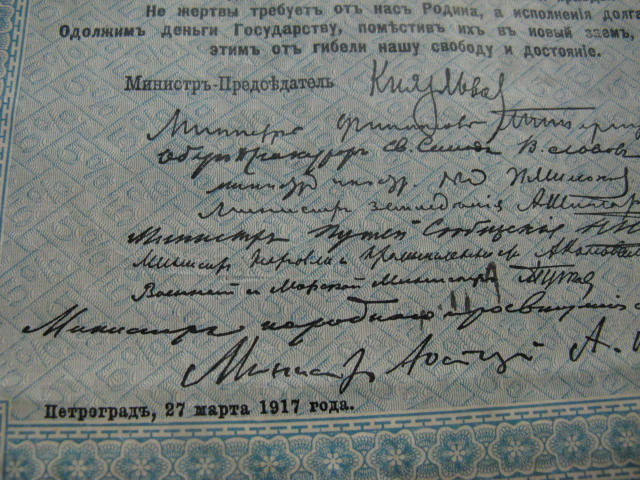 Не жертвы требуетъ отъ насъ Родина, а исполненія долга
Одолжимъ деньги Государству, помѣстивъ ихъ въ новый заемъ,
этимъ отъ гибели нашу свободу и достояніе.
Министръ-Предсѣдатель Князь Львов
Министръ Финансовъ
Оберъ Прокуроръ Св. Синода В. Львов
Министръ
Министръ земледѣлія А. Шингар
Министръ Путей Сообщенія Н
Министръ Торговли и Промышленности А. Коновал
Военный и Морской Министръ А. Гучков
Министръ народнаго просвѣщенія
Министръ Юстиціи А.
Петроградъ, 27 марта 1917 года.